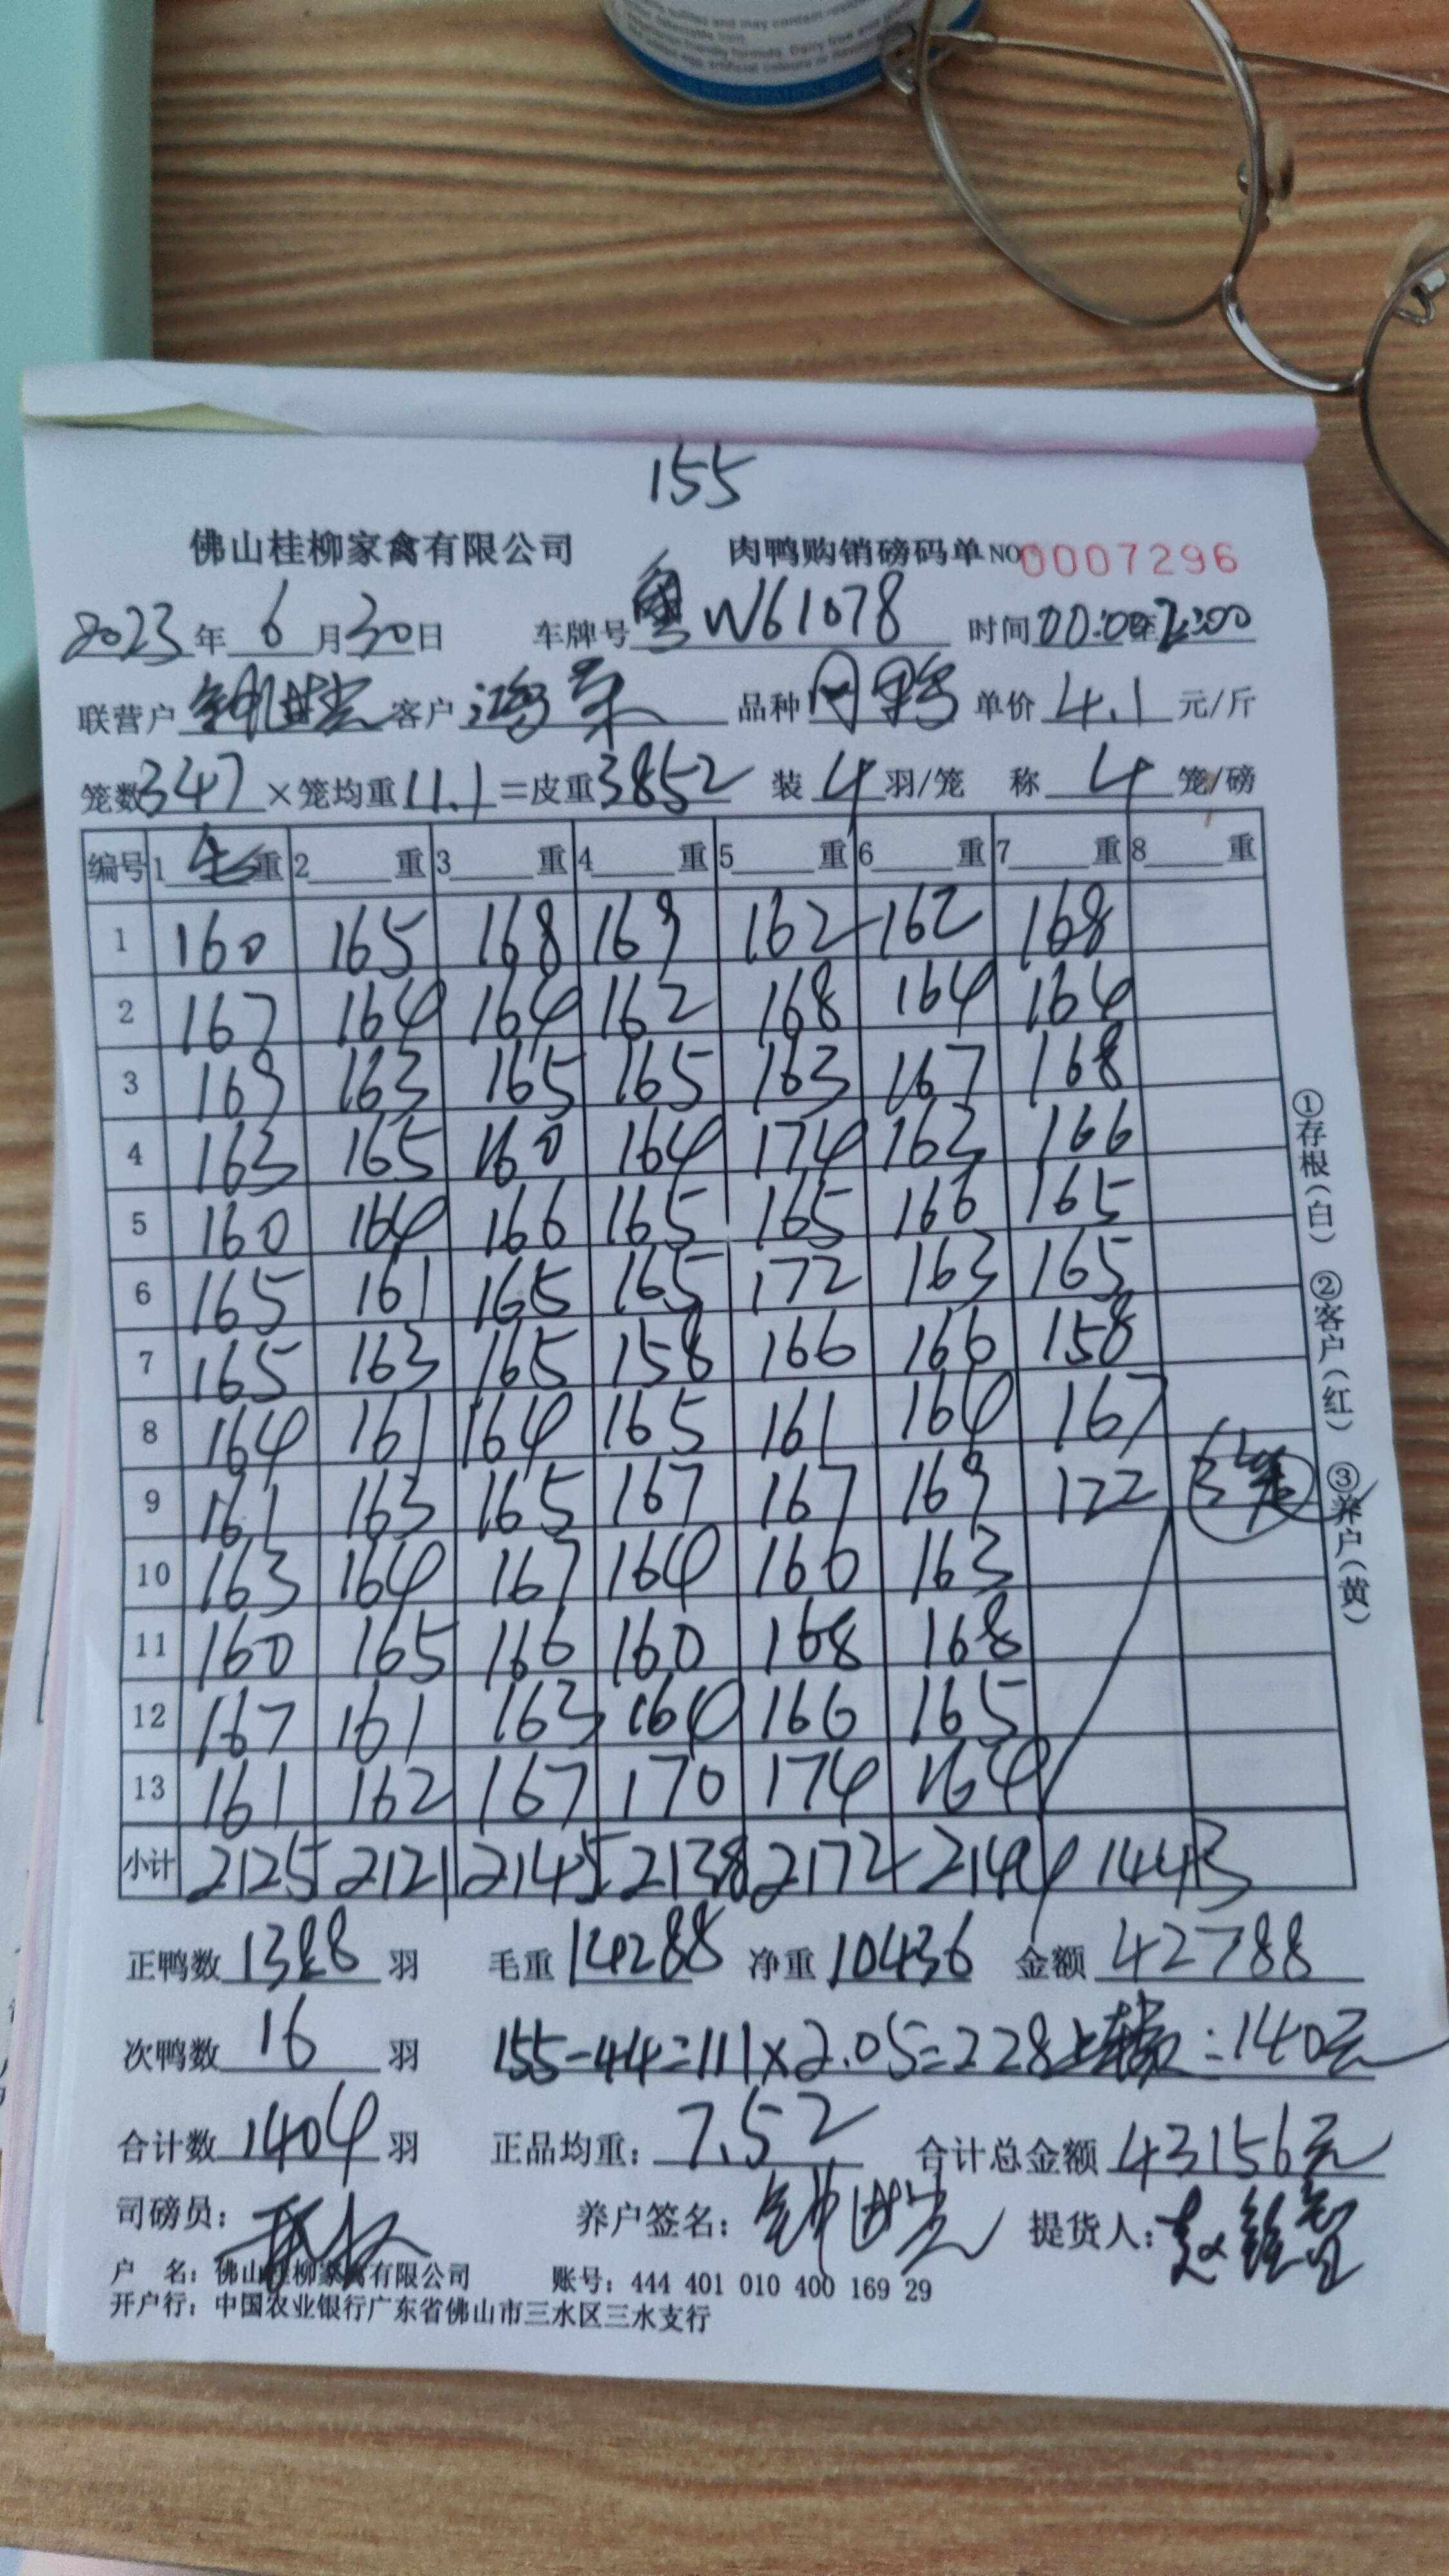 155
佛山桂柳家禽有限公司 肉鸭购销磅码单 NO 0007296
2023 年 6 月 30 日 车牌号 粤W61078 时间 00:00至2:00
联营户 客户 鸿 品种 单价 4.1 元/斤
笼数 347 ×笼均重 11.1 =皮重 3852 装 4 羽/笼 称 4 笼/磅
编号 1 毛重 2 重 3 重 4 重 5 重 6 重 7 重 8 重
1 160 165 168 169 162 162 168
2 167 164 164 162 168 164 164
3 169 163 165 165 163 167 168
4 163 165 160 164 174 163 166
5 160 164 166 165 165 166 165
6 165 161 165 165 172 163 165
7 165 163 165 158 166 166 158
8 164 161 164 165 161 164 167
9 161 163 165 167 167 169 122 3笼
10 163 164 167 164 166 163
11 160 165 166 160 168 168
12 167 161 163 164 166 165
13 161 162 167 170 174 164
小计 2125 2121 2145 2138 2172 2144 1443
正鸭数 1388 羽 毛重 14288 净重 10436 金额 42788
次鸭数 16 羽 155-44=111×2.05=228 上 =140元
合计数 1404 羽 正品均重: 7.52 合计总金额 43156元
司磅员: 养户签名: 钟世 提货人: 赵
户 名: 佛山桂柳家禽有限公司 账号: 444 401 010 400 169 29
开户行: 中国农业银行广东省佛山市三水区三水支行
①存根(白) ②客户(红) ③养户(黄)